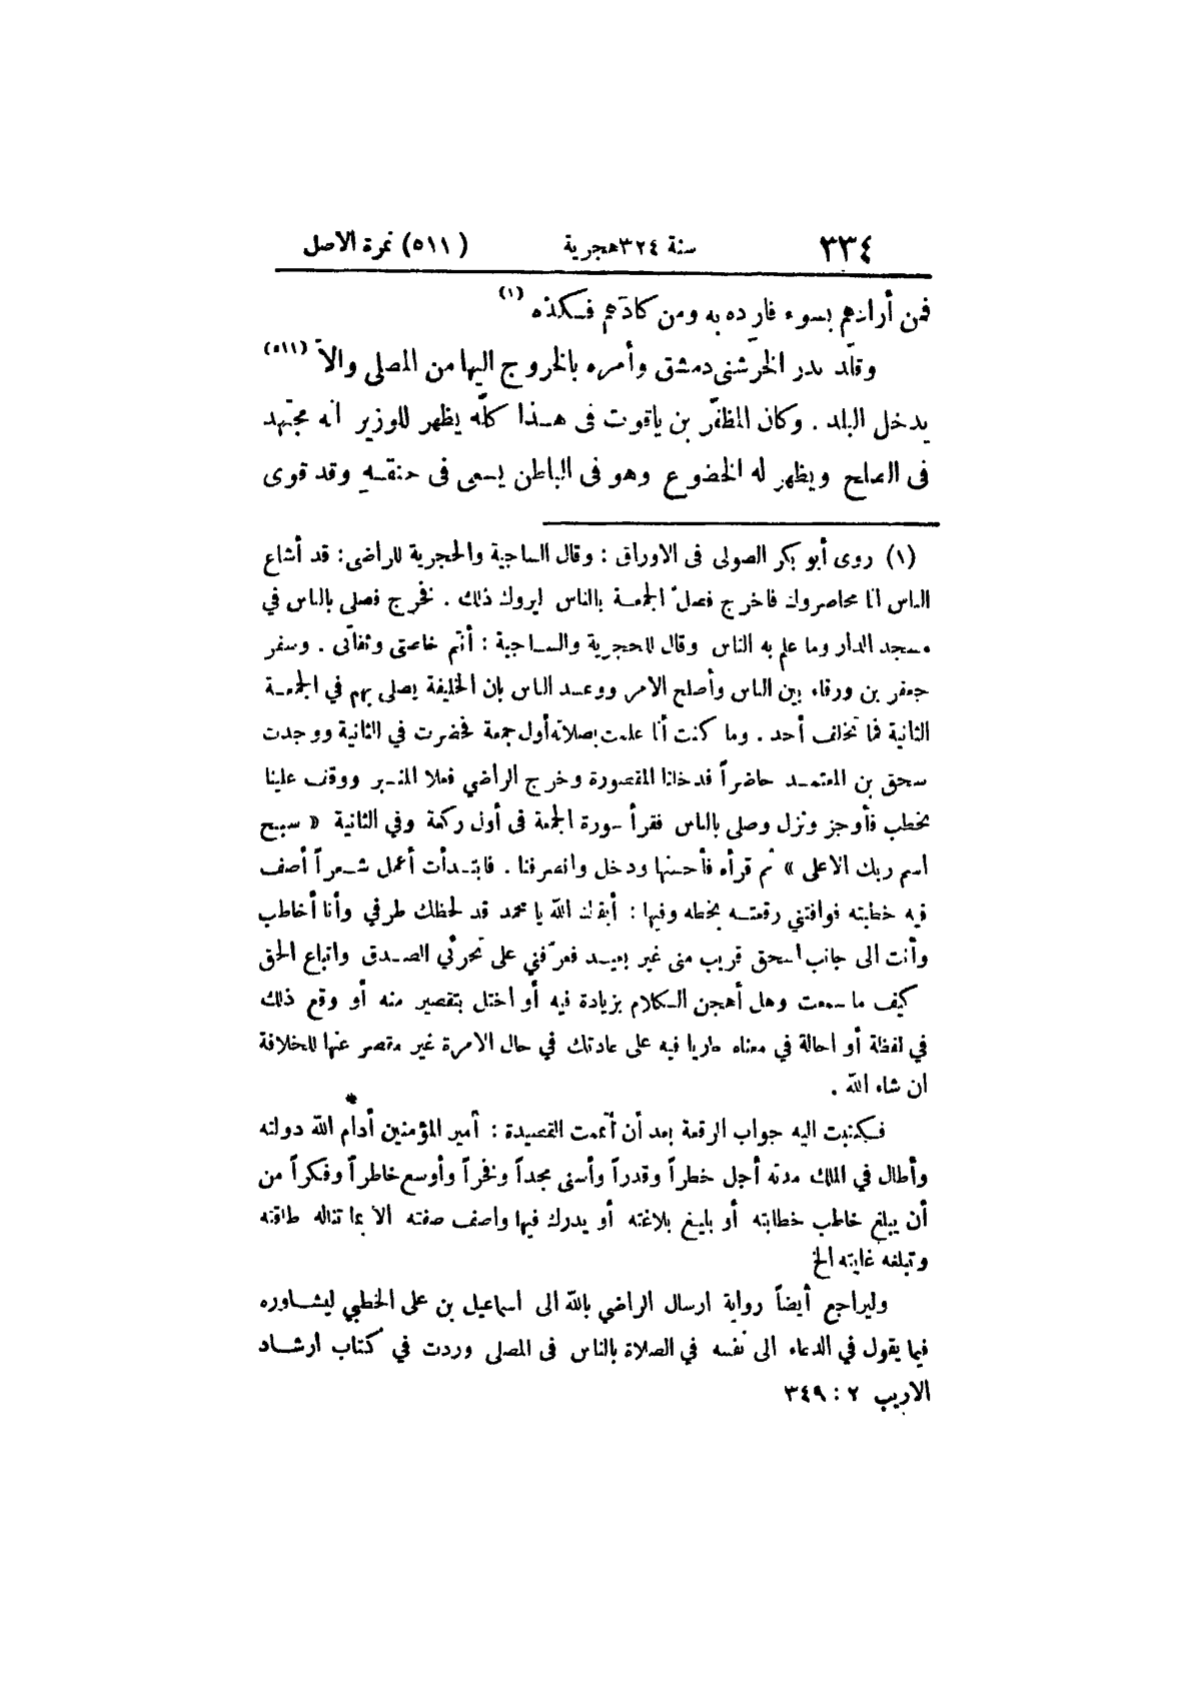 ٣٣٤ سنة ٣٢٤هجرية (٥١١) نمرة الاصل
فمن أرادهم بسوء فارده به ومن كادَهم فكده (١)
وقلّد بدر الخرشنى دمشق وأمره بالخروج اليها من المصلى والاّ (٥١١)
يدخل البلد . وكان المظفّر بن ياقوت فى هذا كلّه يظهر للوزير انه مجتهد
فى الصلح ويظهر له الخضوع وهو فى الباطن يسعى فى حتفه وقد قوى
(١) روى أبو بكر الصولى فى الاوراق : وقال الساجية والحجرية للراضى : قد أشاع
الناس انا محاصروك فاخرج فصلّ الجمعة بالناس ليروك ذلك . فخرج فصلى بالناس في
مسجد الدار وما علم به الناس وقال للحجرية والساجية : أنتم خاصتى وثقاتى . وسفر
جعفر بن ورقاء بين الناس وأصلح الامر ووعد الناس بان الخليفة يصلى بهم في الجمعة
الثانية فما تخلف أحد . وما كنت أنا علمت بصلاته أول جمعة فحضرت في الثانية ووجدت
سحق بن المعتمد حاضراً فدخلنا المقصورة وخرج الراضي فعلا المنبر ووقف علينا
يخطب فأوجز ونزل وصلى بالناس فقرأ سورة الجمعة فى أول ركعة وفي الثانية « سبح
اسم ربك الاعلى » ثم قرأه فأحسنها ودخل وانصرفنا . فابتدأت أعمل شعراً أصف
فيه خطبته فوافتني رقعته بخطه وفيها : أبقاك الله يا محمد قد لحظك طرفي وأنا أخاطب
وأنت الى جانب اسحق قريب منى غير بعيد فعرّفني على تحرّي الصدق واتباع الحق
كيف ما سمعت وهل أهجن الكلام بزيادة فيه أو اختل بتقصير منه أو وقع ذلك
في لفظة أو احالة في معناه جاريا فيه على عادتك في حال الامرة غير مقصر عنها للخلافة
ان شاء الله .
فكتبت اليه جواب الرقعة بعد أن أتممت القصيدة : أمير المؤمنين أدام الله دولته
وأطال في الملك مدته أجل خطراً وقدراً وأسنى مجداً وفخراً وأوسع خاطراً وفكراً من
أن يبلغ خاطب خطابته أو بليغ بلاغته أو يدرك فيها واصف صفته الا بما تناله طاقته
وتبلغه غايته الخ
وليراجع أيضاً رواية ارسال الراضي بالله الى اسماعيل بن على الخطبي ليشاوره
فيما يقول في الدعاء الى نفسه في الصلاة بالناس فى المصلى وردت في كتاب ارشاد
الاريب ٢ : ٣٤٩